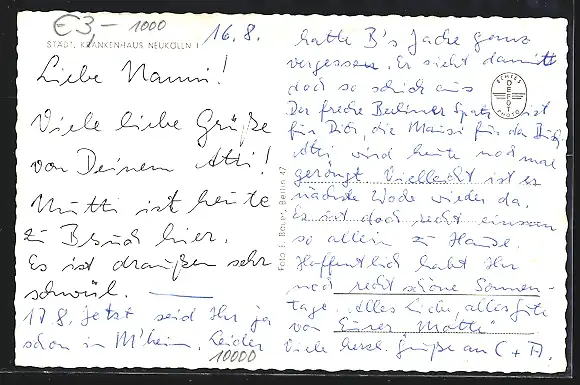 €3,- 1000
16.8.
STÄDT. KRANKENHAUS NEUKÖLLN I
Liebe Nanni!
Viele liebe Grüße
von Deinem Atti!
Mutti ist heute
zu Besuch hier.
Es ist draußen sehr
schwül.
17.8. Jetzt seid Ihr ja
schon in M'heim. Leider
10000
hatte B's Jacke ganz
vergessen. Er sieht damit
doch so schick aus
Der freche Berliner Spatz ist
für Dich, die Mausi für
Atti wird heute noch mal
geröngt. Vielleicht ist er
nächste Woche wieder da.
Es ist doch recht einsam
so allein zu Hause.
Hoffentlich habt Ihr
noch recht schöne Sonnen-
tage. Alles Liebe, alles Gute
von Eurer "Mutti"
Viele herzl. Grüße an C + A.
ECHTES
DEFOT
PHOTO
Foto H. Bauer, Berlin 47